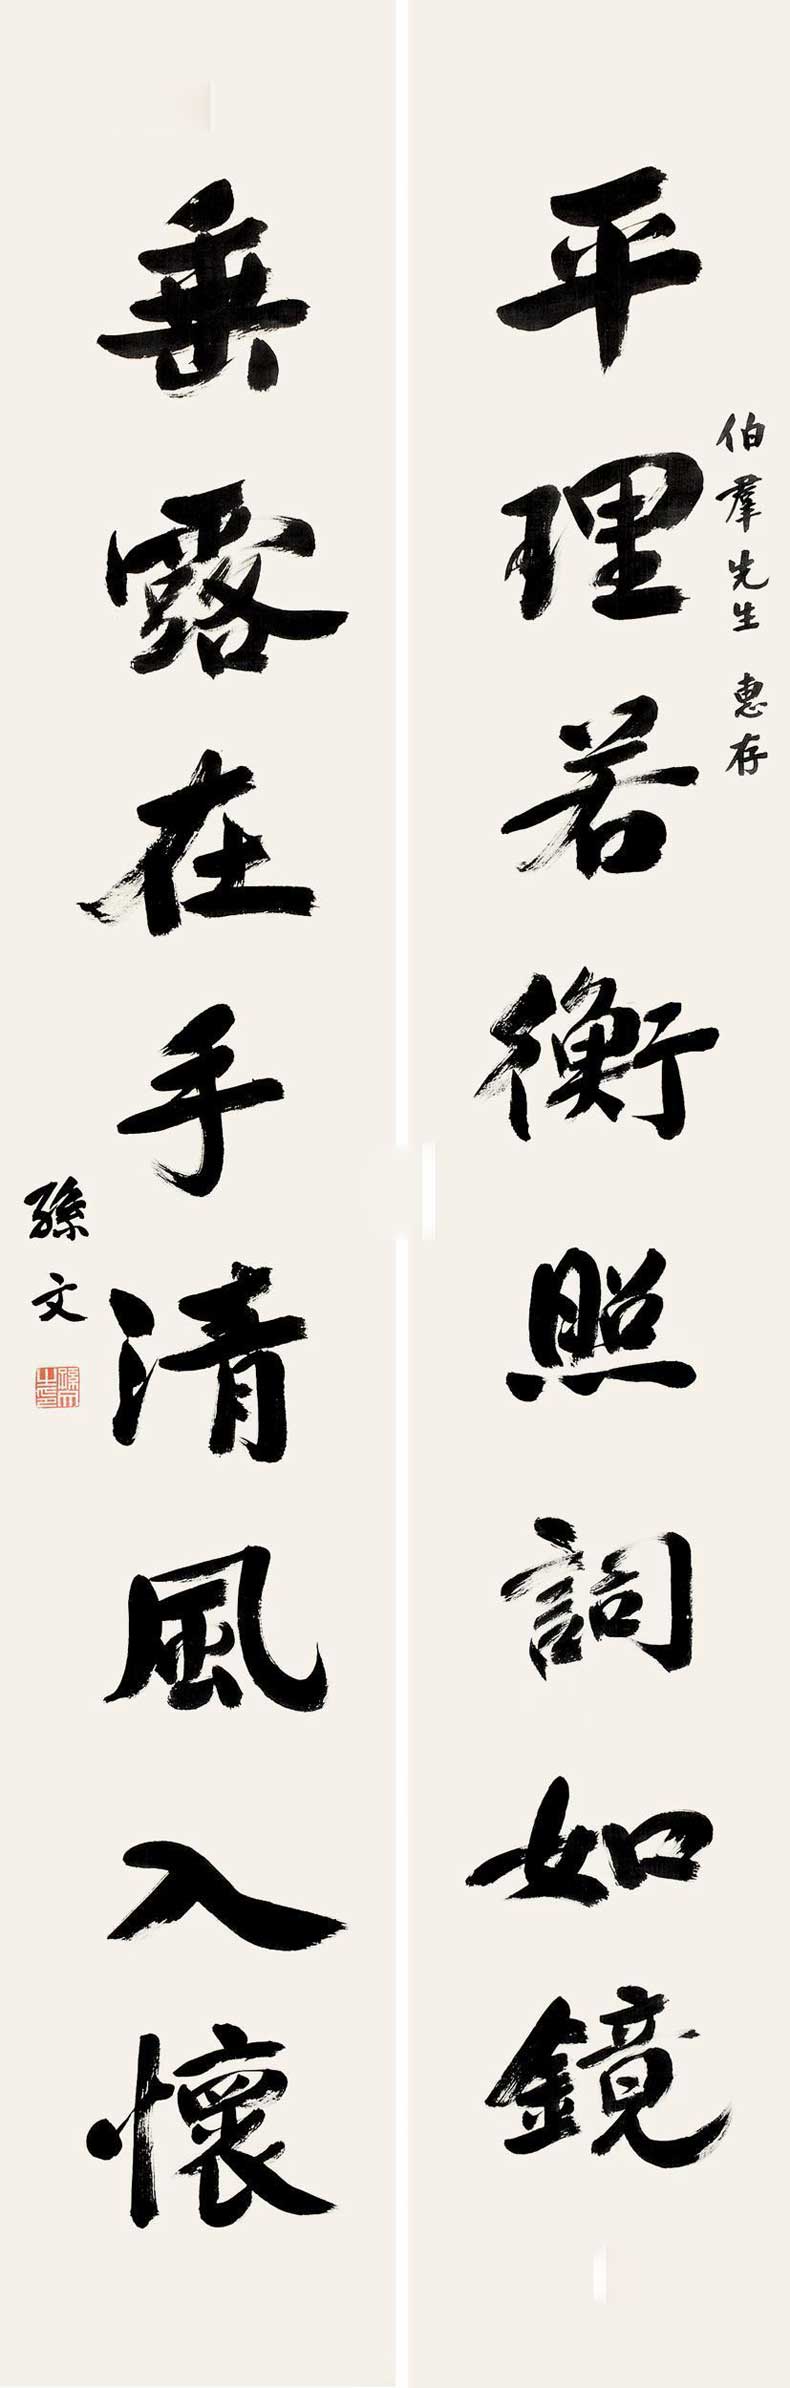 伯羣先生 惠存
平理若衡照詞如鏡
垂露在手清風入懷
孫文
孫文之印